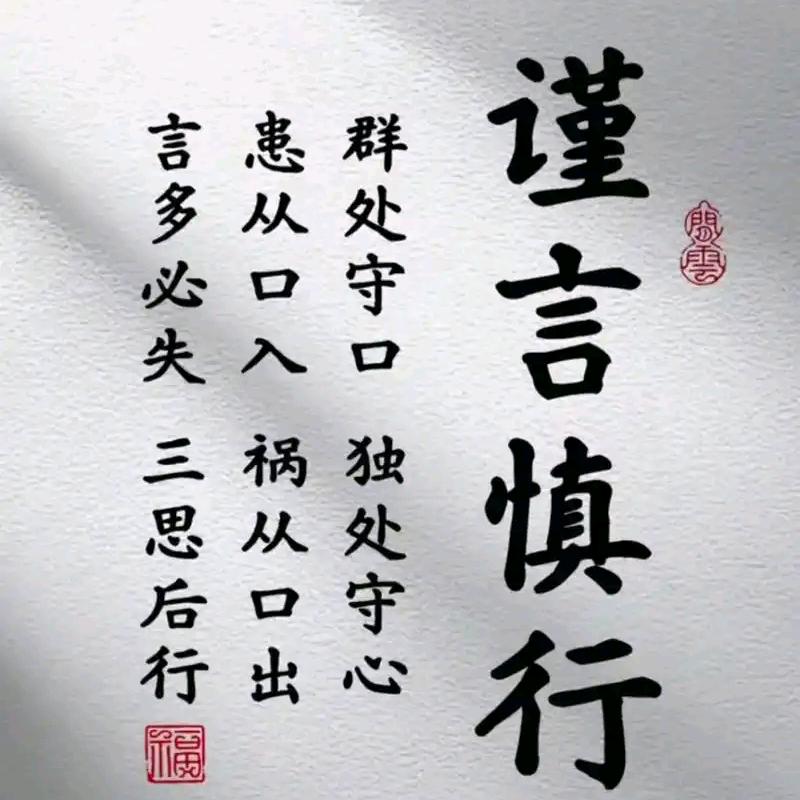 谨言慎行
閒雲
群处守口 独处守心
患从口入 祸从口出
言多必失 三思后行
福